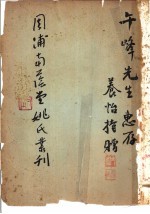 午峰先生惠存
養怡指贈
周浦南蔭堂姚氏叢刊